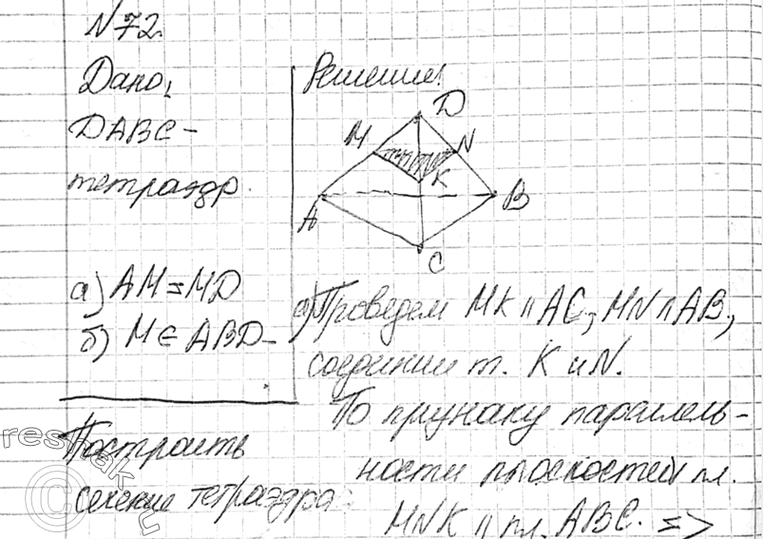 N72.
Дано,
DABC-
тетраэдр.
а) AM=MD
б) M∈ABD-
Построить
сечение тетраэдра
Решение:
D
M
N
K
A
B
C
а) Проведем MK || AC, MN || AB,
соединим т. K и N.
По признаку параллель-
ности плоскостей пл.
MNK || пл. ABC. =>
reshak.ru
©